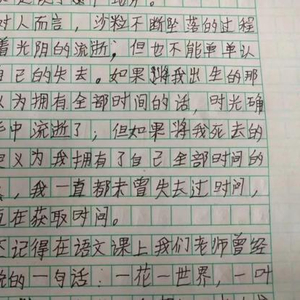 对人而言，沙粒不断坠落的过程
着光阴的流逝；但也不能单单认
自己的失去。如果将我出生的那
义为拥有全部时间的话，时光确
中流逝了；但如果将我死去的
定义为我拥有了自己全部时间的
，我一直都未曾失去过时间，
在获取时间。
不记得在语文课上我们老师曾经
说的一句话：一花一世界，一叶